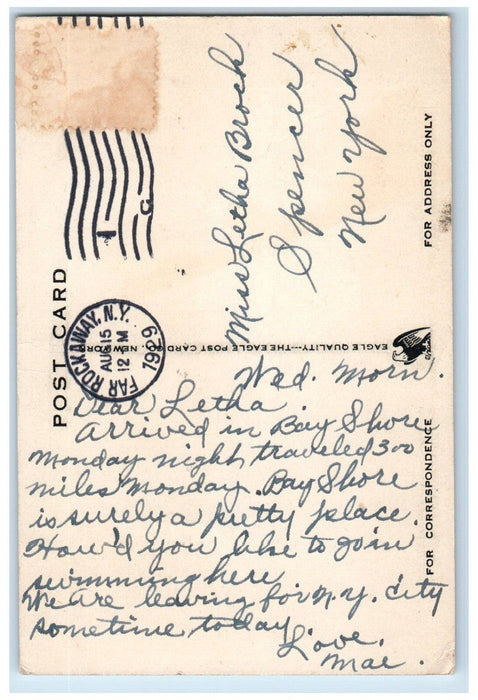 POST CARD
FAR ROCKAWAY, N.Y.
AUG 15
12 M
1929
1
C
Miss Letha Brock
Spencer
New York
FOR ADDRESS ONLY
EAGLE QUALITY---THE EAGLE POST CARD CO. NEW YORK
FOR CORRESPONDENCE
Wed. Morn.
Dear Letha
Arrived in Bay Shore
Monday night, traveled 300
miles Monday. Bay Shore
is surely a pretty place.
How'd you like to join
swimming here
We are leaving for N.Y. City
sometime today.
Love.
Mae.